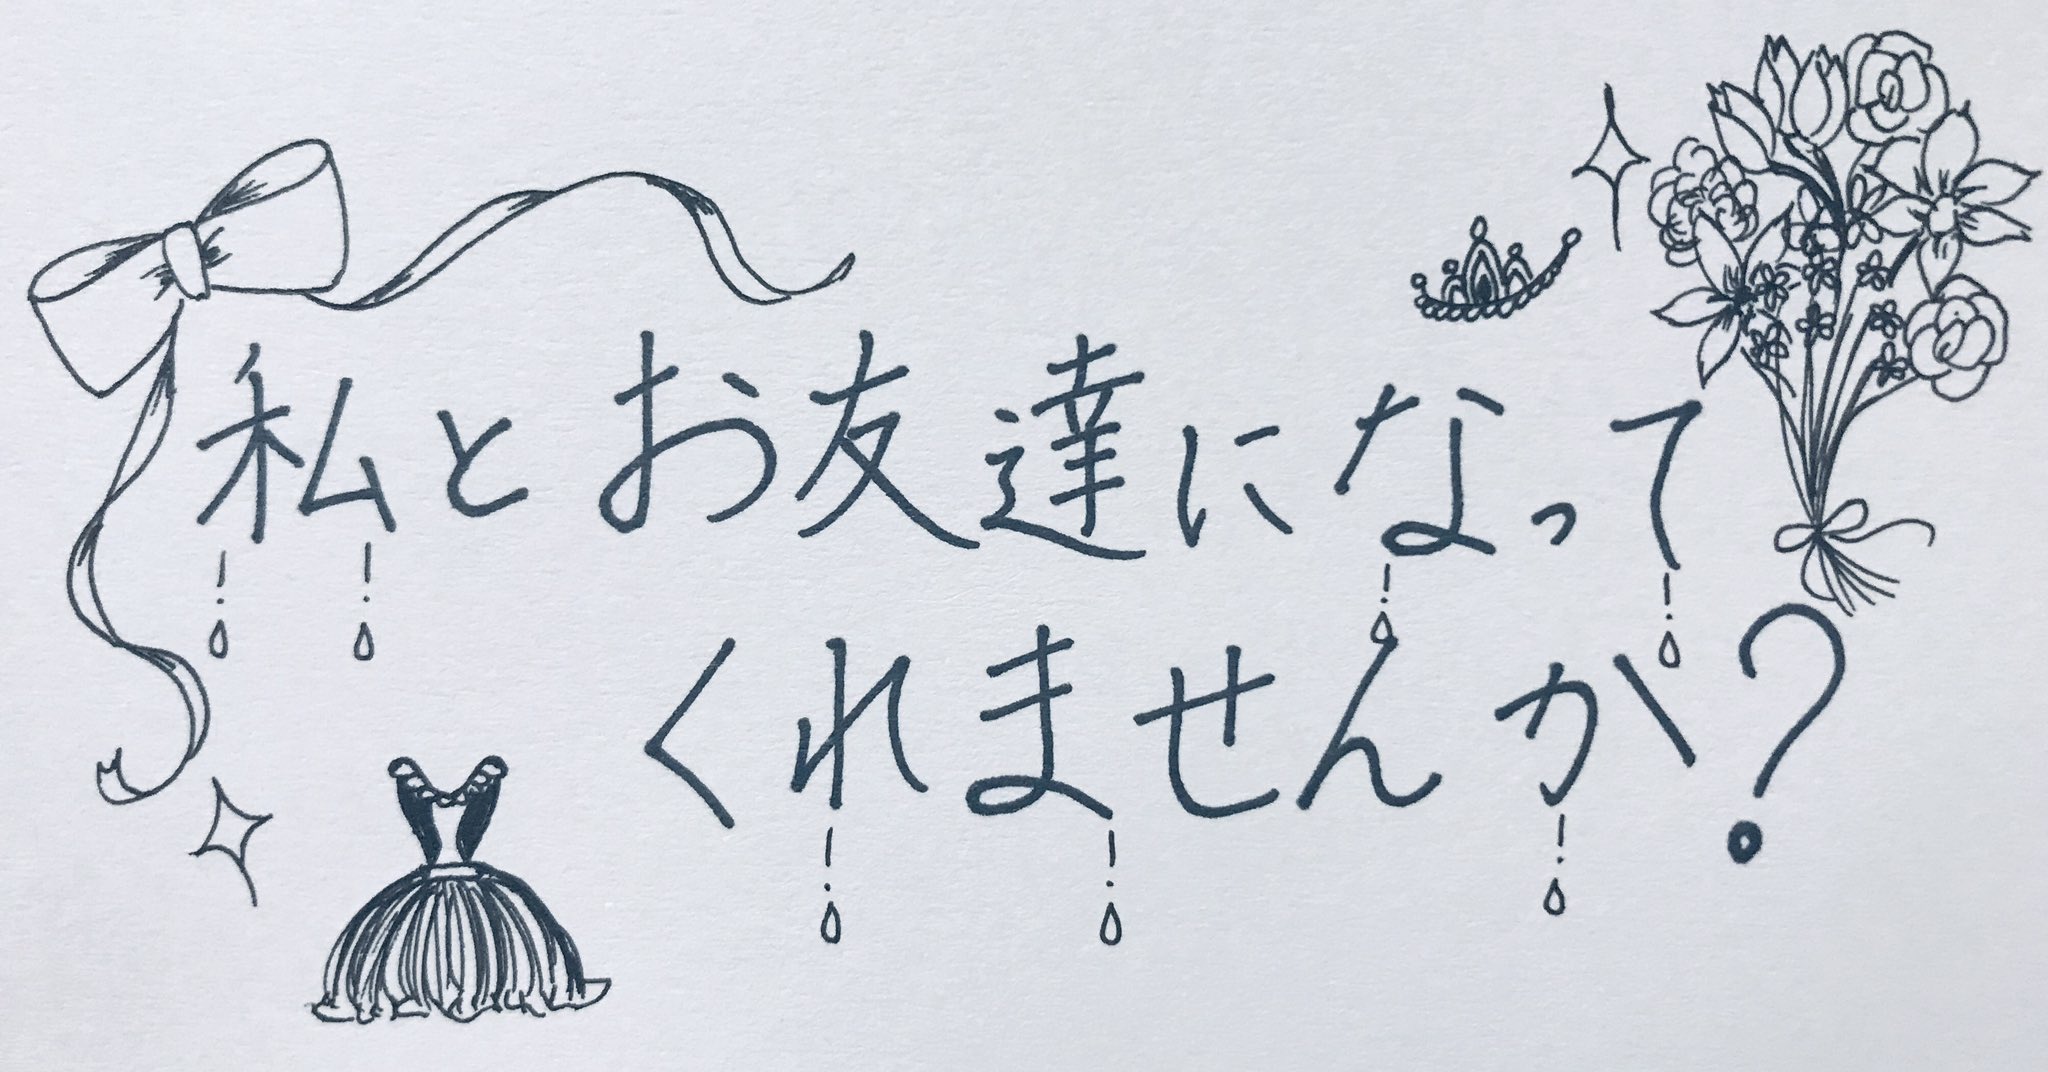 私とお友達になって
くれませんか?